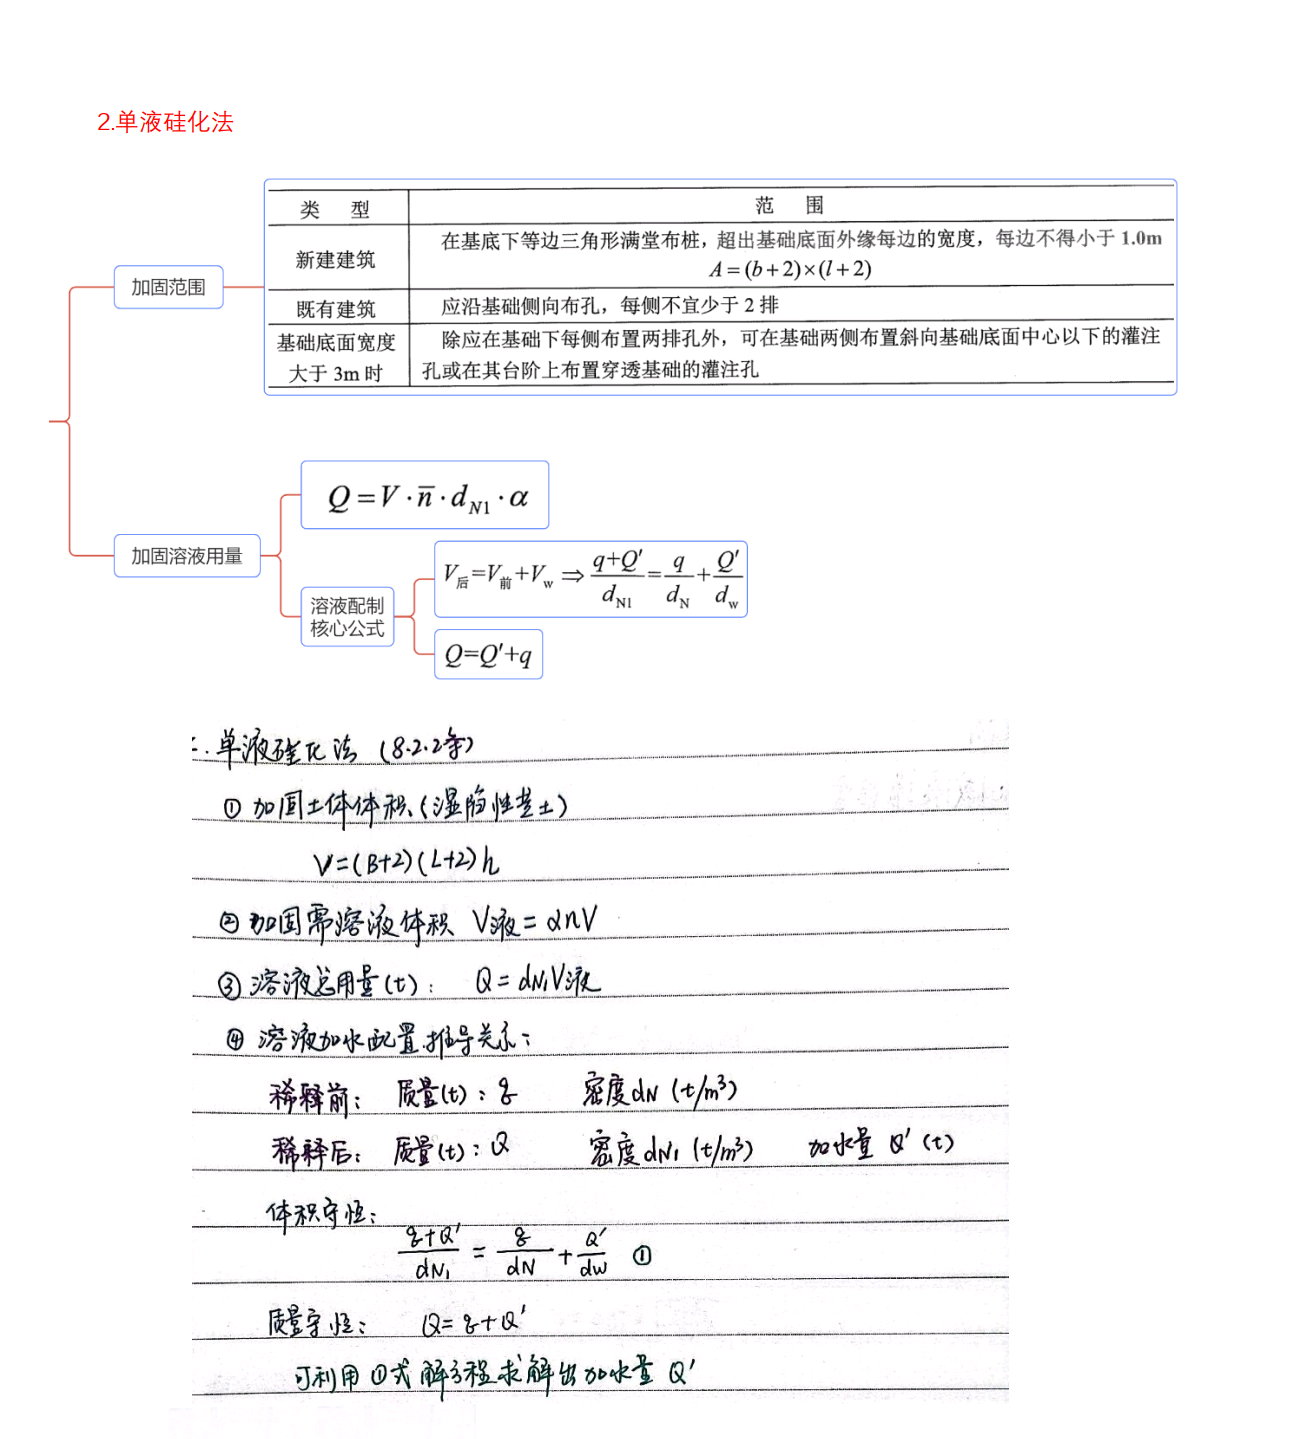 2.单液硅化法
加固范围
类 型 范 围
新建建筑 在基底下等边三角形满堂布桩，超出基础底面外缘每边的宽度，每边不得小于 1.0m
A=(b+2)×(l+2)
既有建筑 应沿基础侧向布孔，每侧不宜少于 2 排
基础底面宽度 除应在基础下每侧布置两排孔外，可在基础两侧布置斜向基础底面中心以下的灌注
大于 3m 时 孔或在其台阶上布置穿透基础的灌注孔
加固溶液用量
Q=V·n̅·d_N1·α
溶液配制
核心公式
V后=V前+Vw ⇒ (q+Q′)/d_N1=q/d_N+Q′/d_w
Q=Q′+q
二.单液硅化法 (8.2.2条)
① 加固土体体积(湿陷性黄土)
V=(B+2)(L+2)h
② 加固需溶液体积 V液=αnV
③ 溶液总用量(t)： Q=dN1V液
④ 溶液加水配置推导关系：
稀释前： 质量(t)：q 密度dN (t/m³)
稀释后： 质量(t)：Q 密度dN1 (t/m³) 加水量 Q′(t)
体积守恒：
(q+Q′)/dN1 = q/dN + Q′/dw ①
质量守恒： Q=q+Q′
可利用①式解方程求解出加水量 Q′